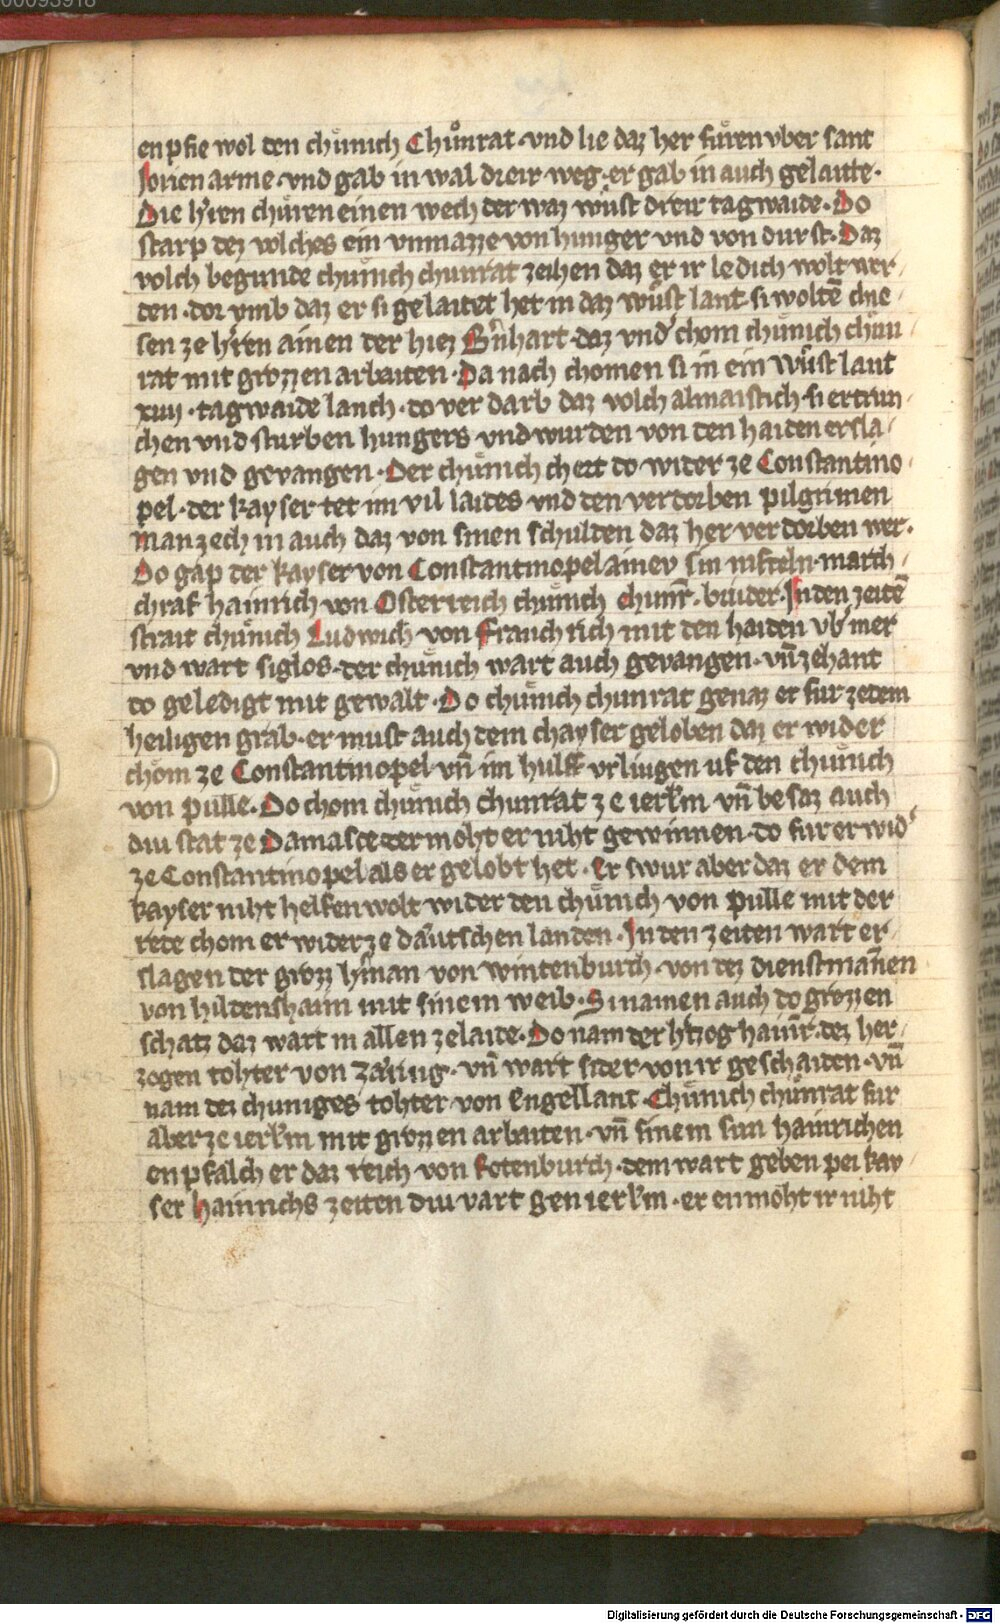 00093918
enpfie wol den chünich Chůnrat · vnd lie daz her füren vber sant
Jorien arme · vnd gab in wal dreir weg · er gab in auch gelaite ·
Die h'ren churen einen wech der waz wůst dreir tagwaide · Do
starp dez volches ein vnmazze von hunger vnd von durst · Daz
volch begunde chünich chunrat zeihen daz er ir ledich wolt wer/
den · dor vmb daz er si geleitet het in daz wüst lant · si woltē chie/
sen ze h'ren ainen der hiez B'nhart · daz vnd'chom chünich chün
rat mit grozzen arbaiten · Da nach chomen si in ein wüst lant
xiiij · tagwaide lanch · do verdarb daz volch almaistich · si ertrun/
chen vnd sturben hungers vnd wurden von den haiden ersla/
gen vnd gevangen · Der chünich chert do wider ze Constantino/
pel · der kayser tet im vil laides vnd den verdorben pilgrimen
man zech in auch daz von sinen schulden daz her verdorben wer ·
Do gap der kayser von Constantinopel ainev sin nifteln march/
chraf hainrich von Osterreich chünich chunr̄ · bruder · In den zeitē
strait chünich Ludwich von Franchrich mit den haiden vb' mer
vnd wart siglos · der chünich wart auch gevangen · vn̄ zehant
do geledigt mit gewalt · Do chünich chunrat genaz er fur ze dem
heiligen grab · er must auch dem chayser geloben daz er wider
chöm ze Constantinopel vn̄ im hulff vrliugen uf den chünich
von pulle · Do chom chünich chunrat ze ierl'm vn̄ besaz auch
diu stat ze Damasce der moht er niht gewinnen · do fur er wid'
ze Constantinopel als er gelobt het · Er swur aber daz er dem
kayser niht helfen wolt wider den chünich von pulle mit der
rete chom er wider ze däutschen landen · In den zeiten wart er/
slagen der grozz h'man von wintenburch · von dez dienstmañen
von hildenshaim mit sinem weib · Si namen auch do grozzen
schatz daz wart in allen ze laide · Do nam der h'tzog hainr̄ · dez her/
zogen tohter von Zäring · vn̄ wart sider von ir geschaiden · vn̄
nam dez chuniges tohter von Engellant · Chünich chůnrat fur
aber ze ierl'm mit grozzen arbaiten · vn̄ sinem sun hainrichen
enpfalch er daz reich von Rotenburch · dem wart geben pei kay/
ser hainrichs zeiten diu vart gen ierl'm · er enmöht ir niht
Digitalisierung gefördert durch die Deutsche Forschungsgemeinschaft - DFG